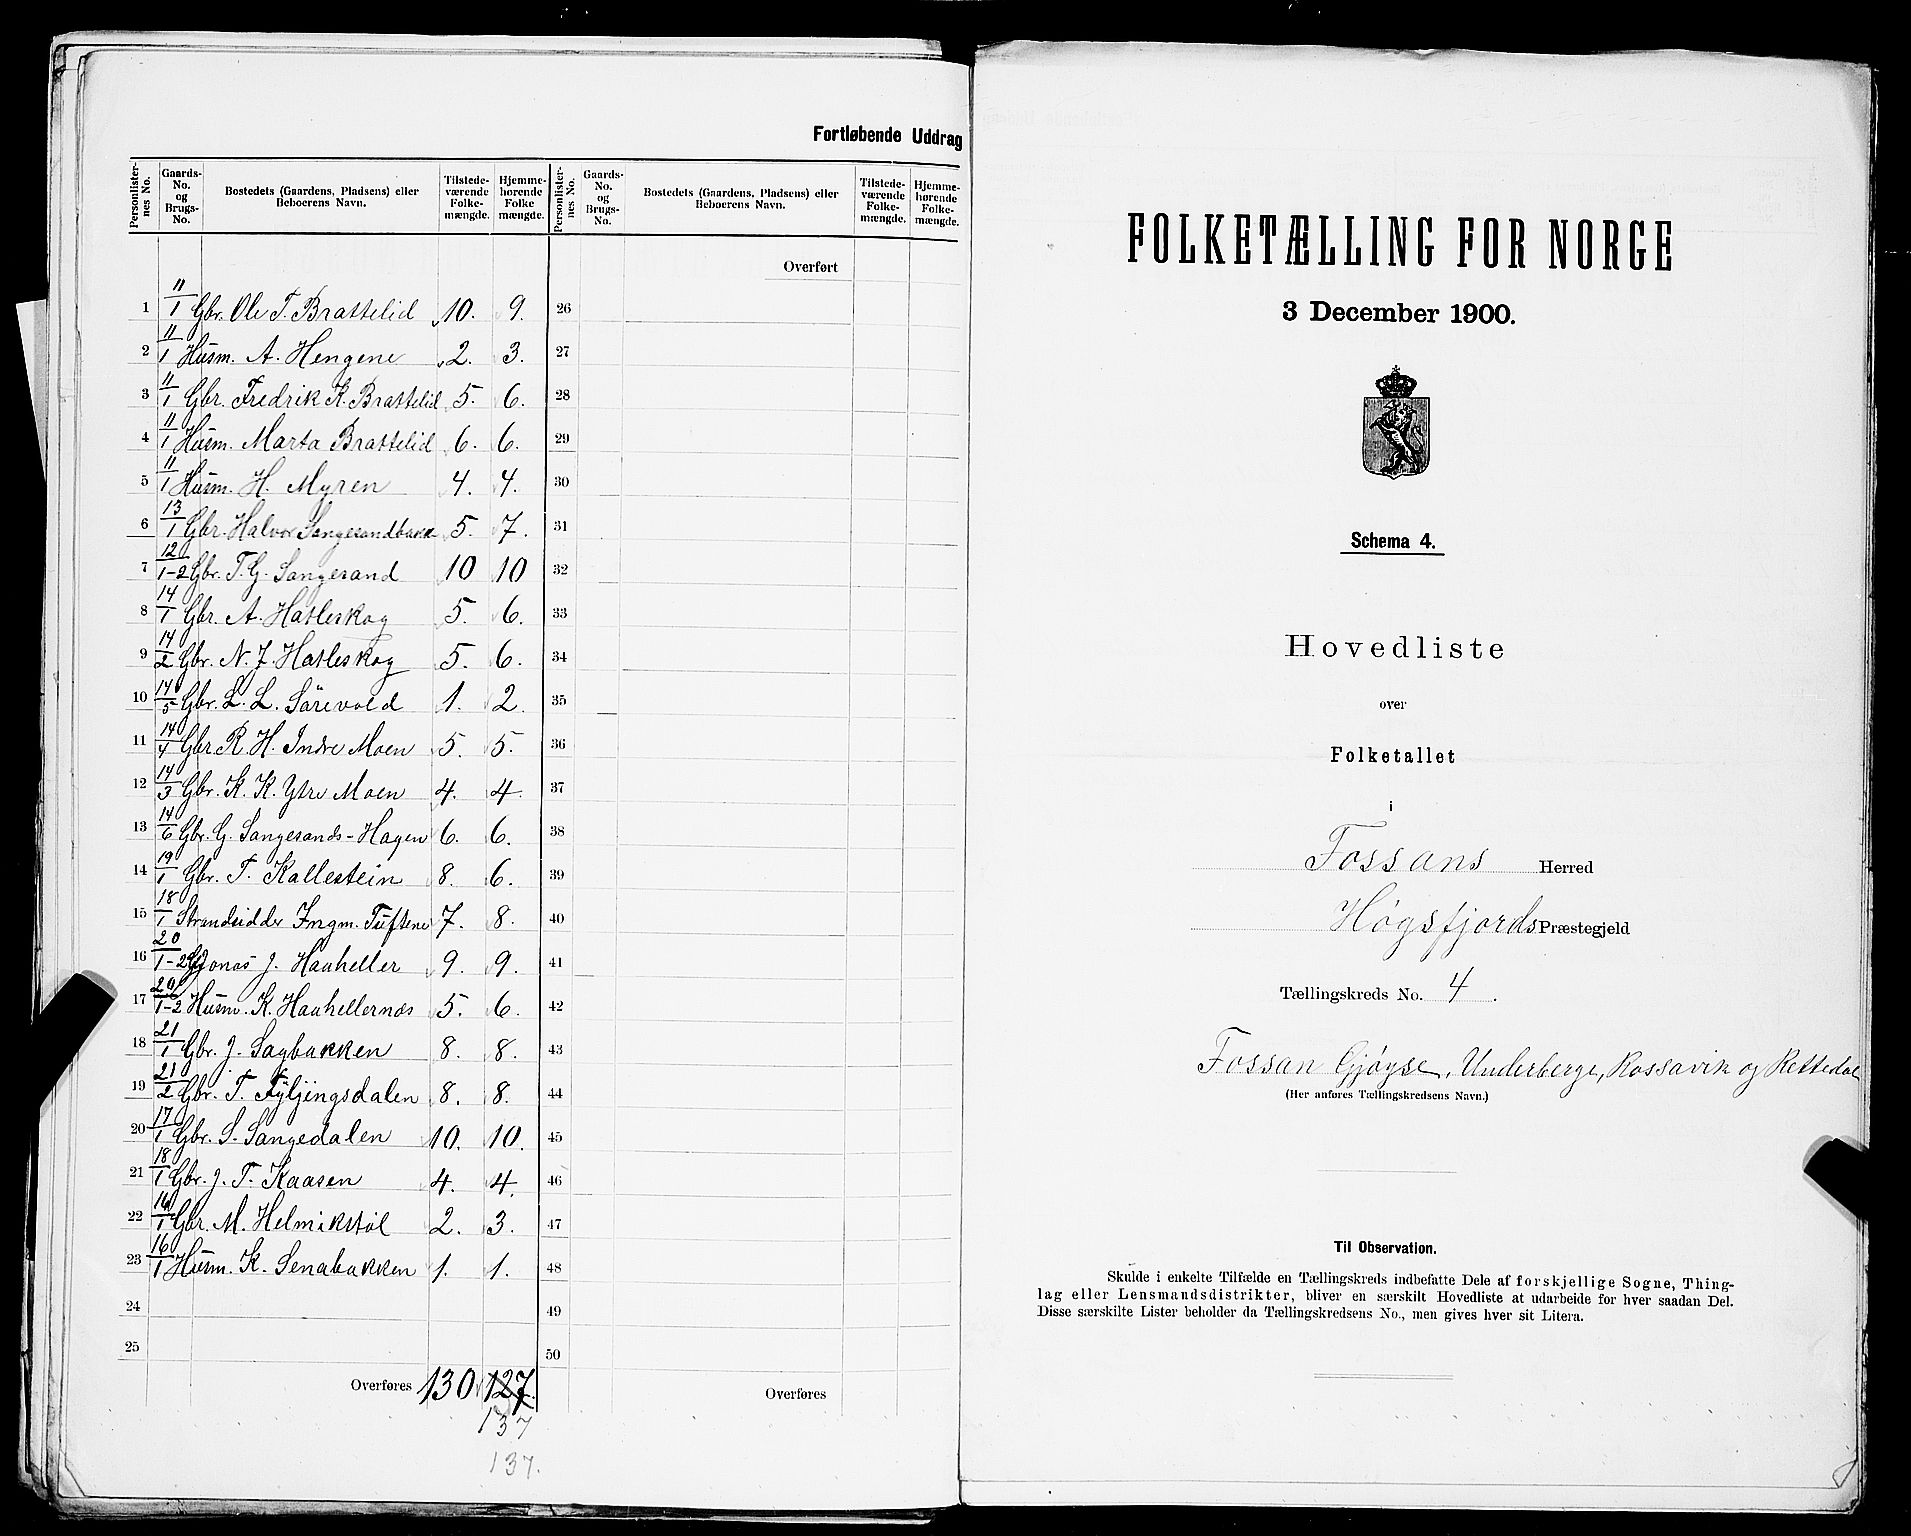 Fortløbende Uddrag
Personlisternes No.
Gaards-No. og Brugs-No.
Bostedets (Gaardens, Pladsens) eller Beboerens Navn.
Tilstedeværende Folkemængde.
Hjemmehørende Folkemængde.
Personlisternes No.
Gaards-No. og Brugs-No.
Bostedets (Gaardens, Pladsens) eller Beboerens Navn.
Tilstedeværende Folkemængde.
Hjemmehørende Folkemængde.
Overført
1 11/1 Gbr. Ole T. Brattelid 10. 9. 26
2 11/1 Husm. A. Hengene 2. 3. 27
3 11/1 Gbr. Fredrik K. Brattelid 5. 6. 28
4 11/1 Husm. Marta Brattelid 6. 6. 29
5 11/1 Husm. H. Myren 4. 4. 30
6 13/1 Gbr. Halvor Sangesandbakk 5. 7. 31
7 12/1-2 Gbr. T. G. Sangesand 10 10 32
8 14/1 Gbr. A. Hatleskog 5. 6. 33
9 14/2 Gbr. N. J. Hatleskog 5. 6. 34
10 14/5 Gbr. L. L. Sörevold 1. 2. 35
11 14/4 Gbr. R. H. Indre Moen 5. 5. 36
12 14/3 Gbr. K. K. Ytre Moen 4. 4. 37
13 14/6 Gbr. G. Sangesands-Hagen 6. 6. 38
14 19/1 Gbr. T. Kallestein 8. 6. 39
15 18/1 Strandsidder Ingm. Tuftene 7. 8. 40
16 20/1-2 Jonas J. Haaheller 9. 9. 41
17 20/1-2 Husm. K. Haahellernæs 5. 6. 42
18 21/1 Gbr. J. Sagbakken 8. 8. 43
19 21/2 Gbr. T. Fyljingsdalen 8. 8. 44
20 17/1 Gbr. S. Sangedalen 10. 10. 45
21 18/1 Gbr. J. T. Kaasen 4. 4. 46
22 16/1 Gbr. M. Helmikstöl 2. 3. 47
23 16/1 Husm. K. Senabakken 1. 1. 48
24 49
25 50
Overføres 130 127. Overføres
137
137.
FOLKETÆLLING FOR NORGE
3 December 1900.
Schema 4.
Hovedliste
over
Folketallet
i
Fossans Herred
Høgsfjords Præstegjeld
Tællingskreds No. 4.
Fossan Gjøyse, Underberge, Rossavik og Rettedal
(Her anføres Tællingskredsens Navn.)
Til Observation.
Skulde i enkelte Tilfælde en Tællingskreds indbefatte Dele af forskjellige Sogne, Thing-
lag eller Lensmandsdistrikter, bliver en særskilt Hovedliste at udarbeide for hver saadan Del.
Disse særskilte Lister beholder da Tællingskredsens No., men gives hver sit Litera.